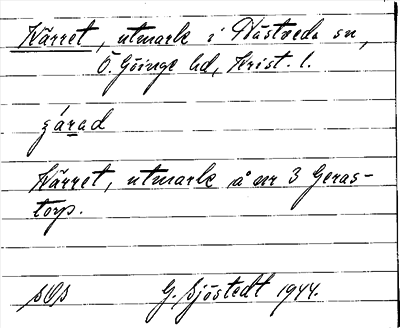 Kärret, utmark i Hästveda sn,
Ö. Göinge hd, Krist. l.
Kärret, utmark å nr 3 Geras-
torp.
G. Sjöstedt 1944.